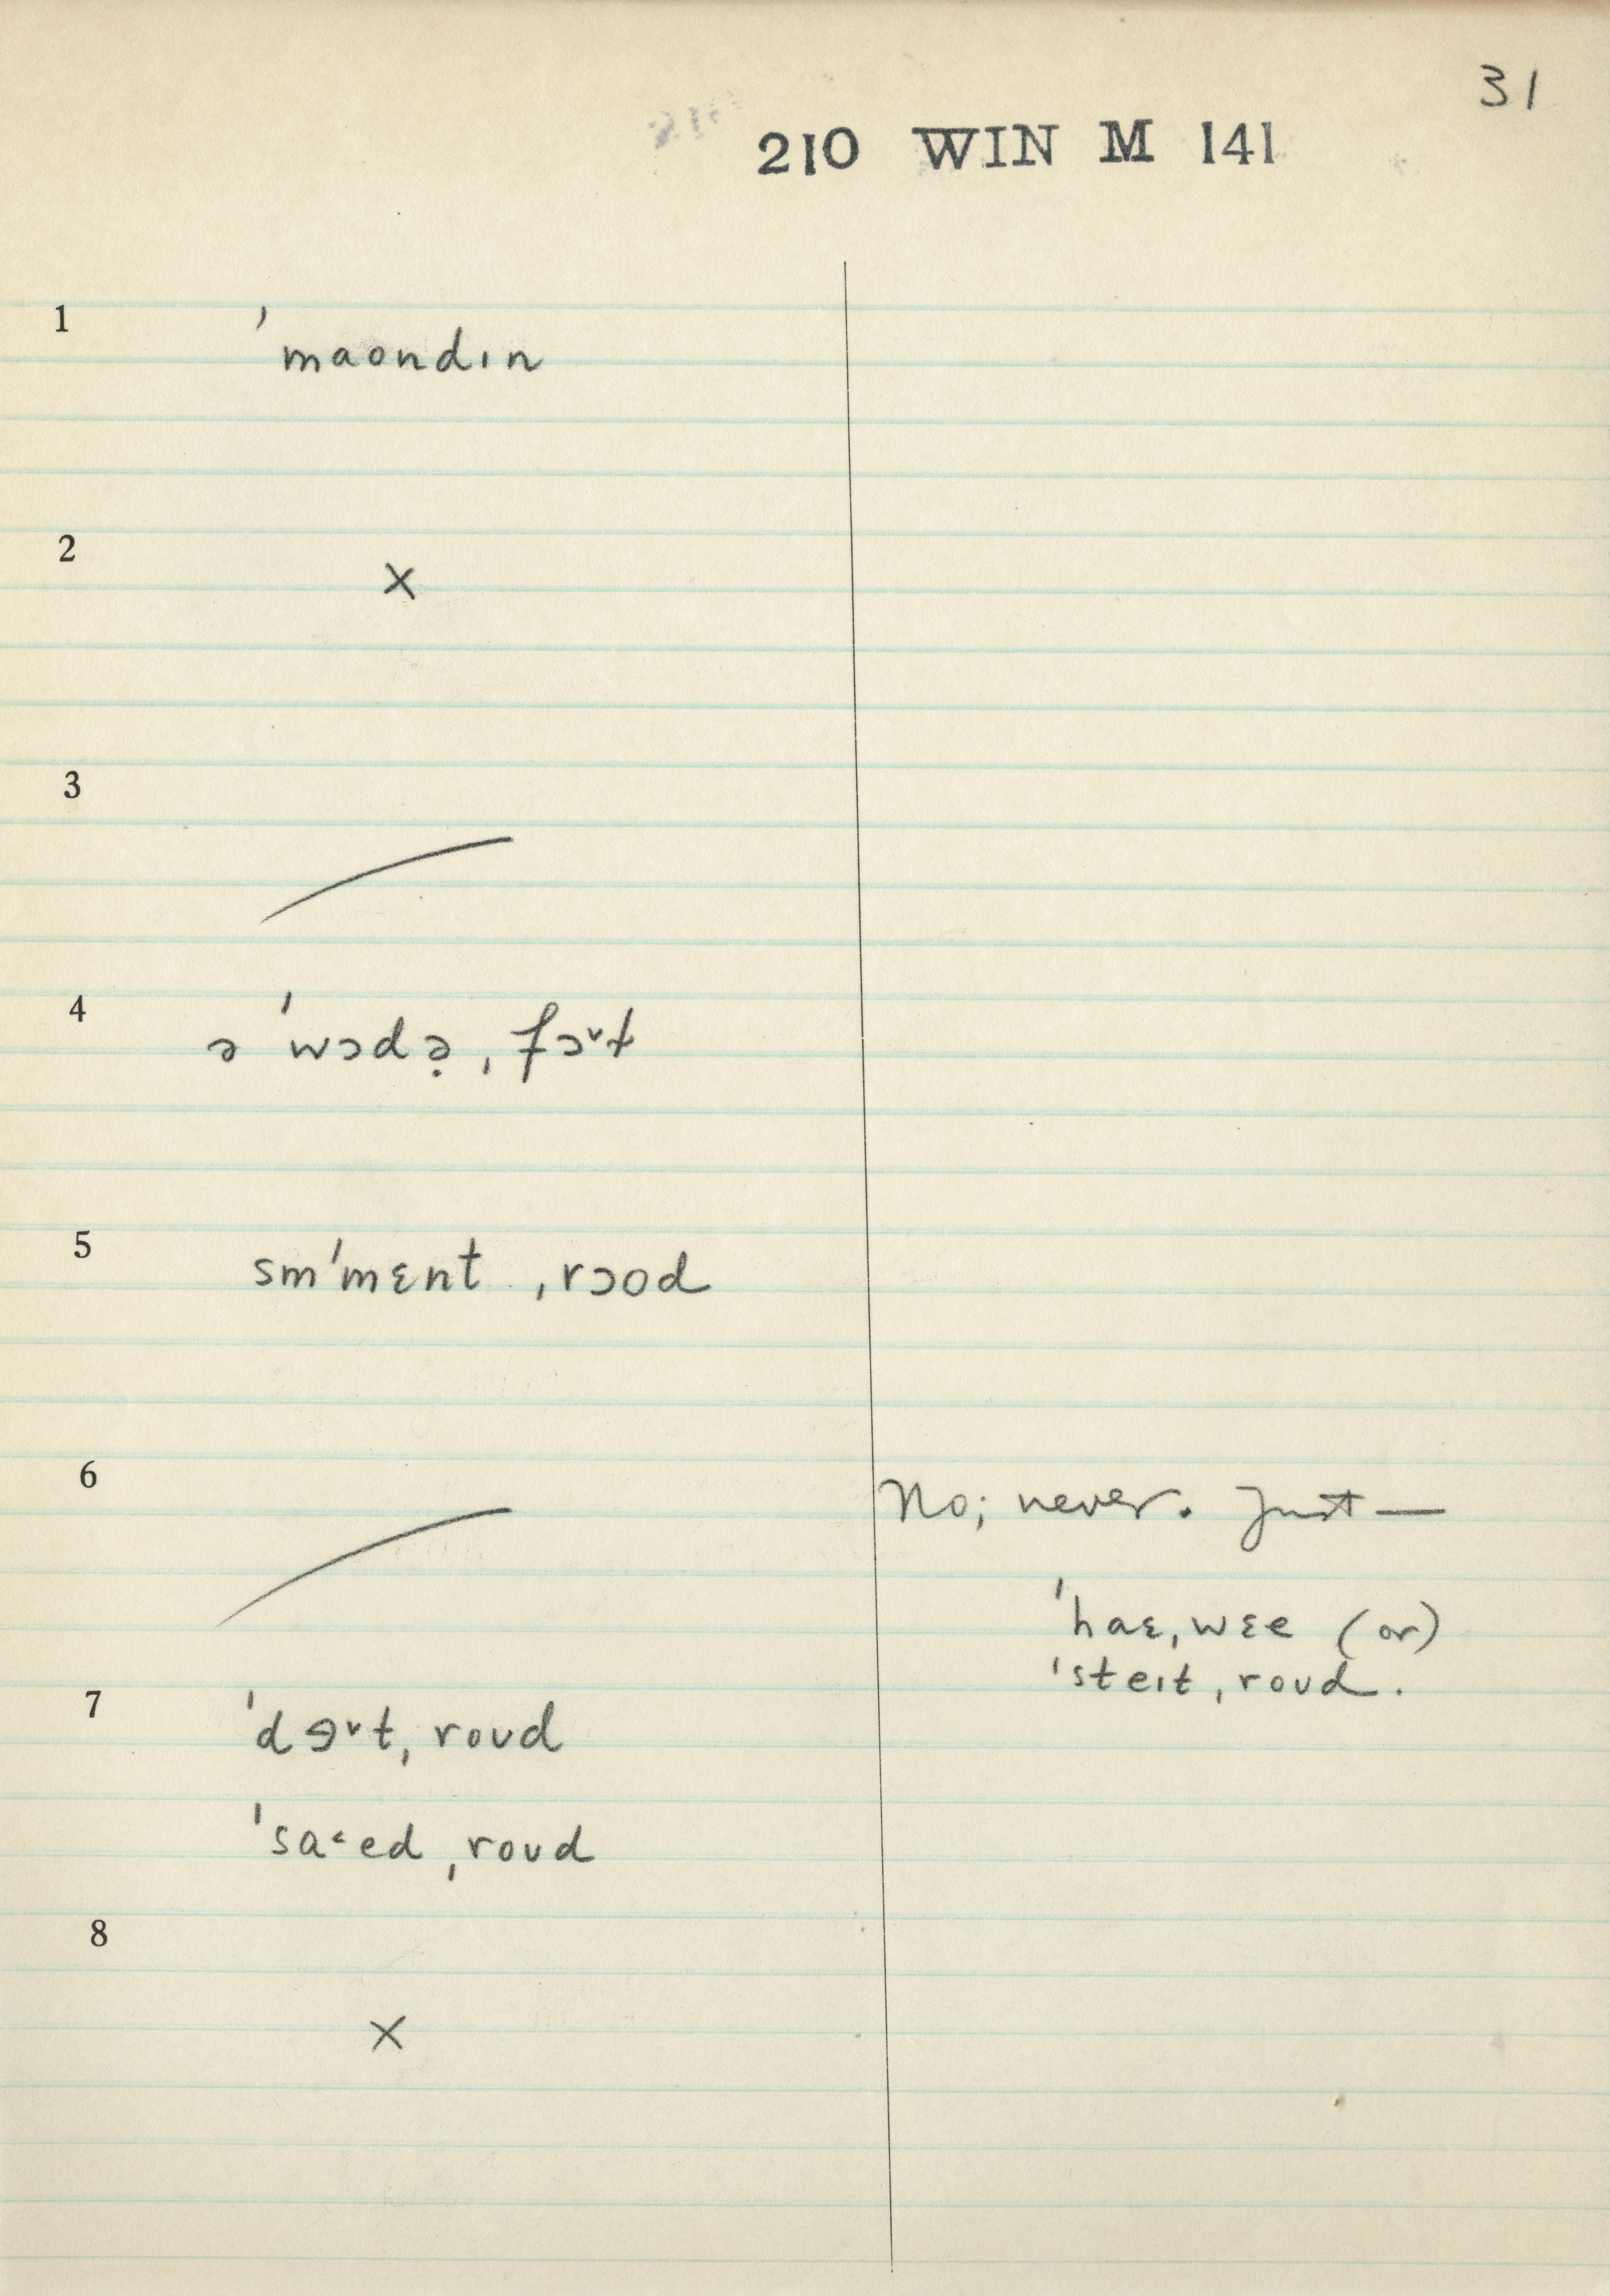 31
210 WIN M 141
1
ˈmaondɪn
2
×
3
4
ə ˈwɔdə̣ ˌfɔ˅t
5
sm̩ˈmɛnt ˌrɔod
6
No; never. Just —
ˈhaɛˌwɛe (or)
ˈsteɪtˌroʊd.
7
ˈdɘ˅tˌroʊd
ˈsa˂edˌroʊd
8
×